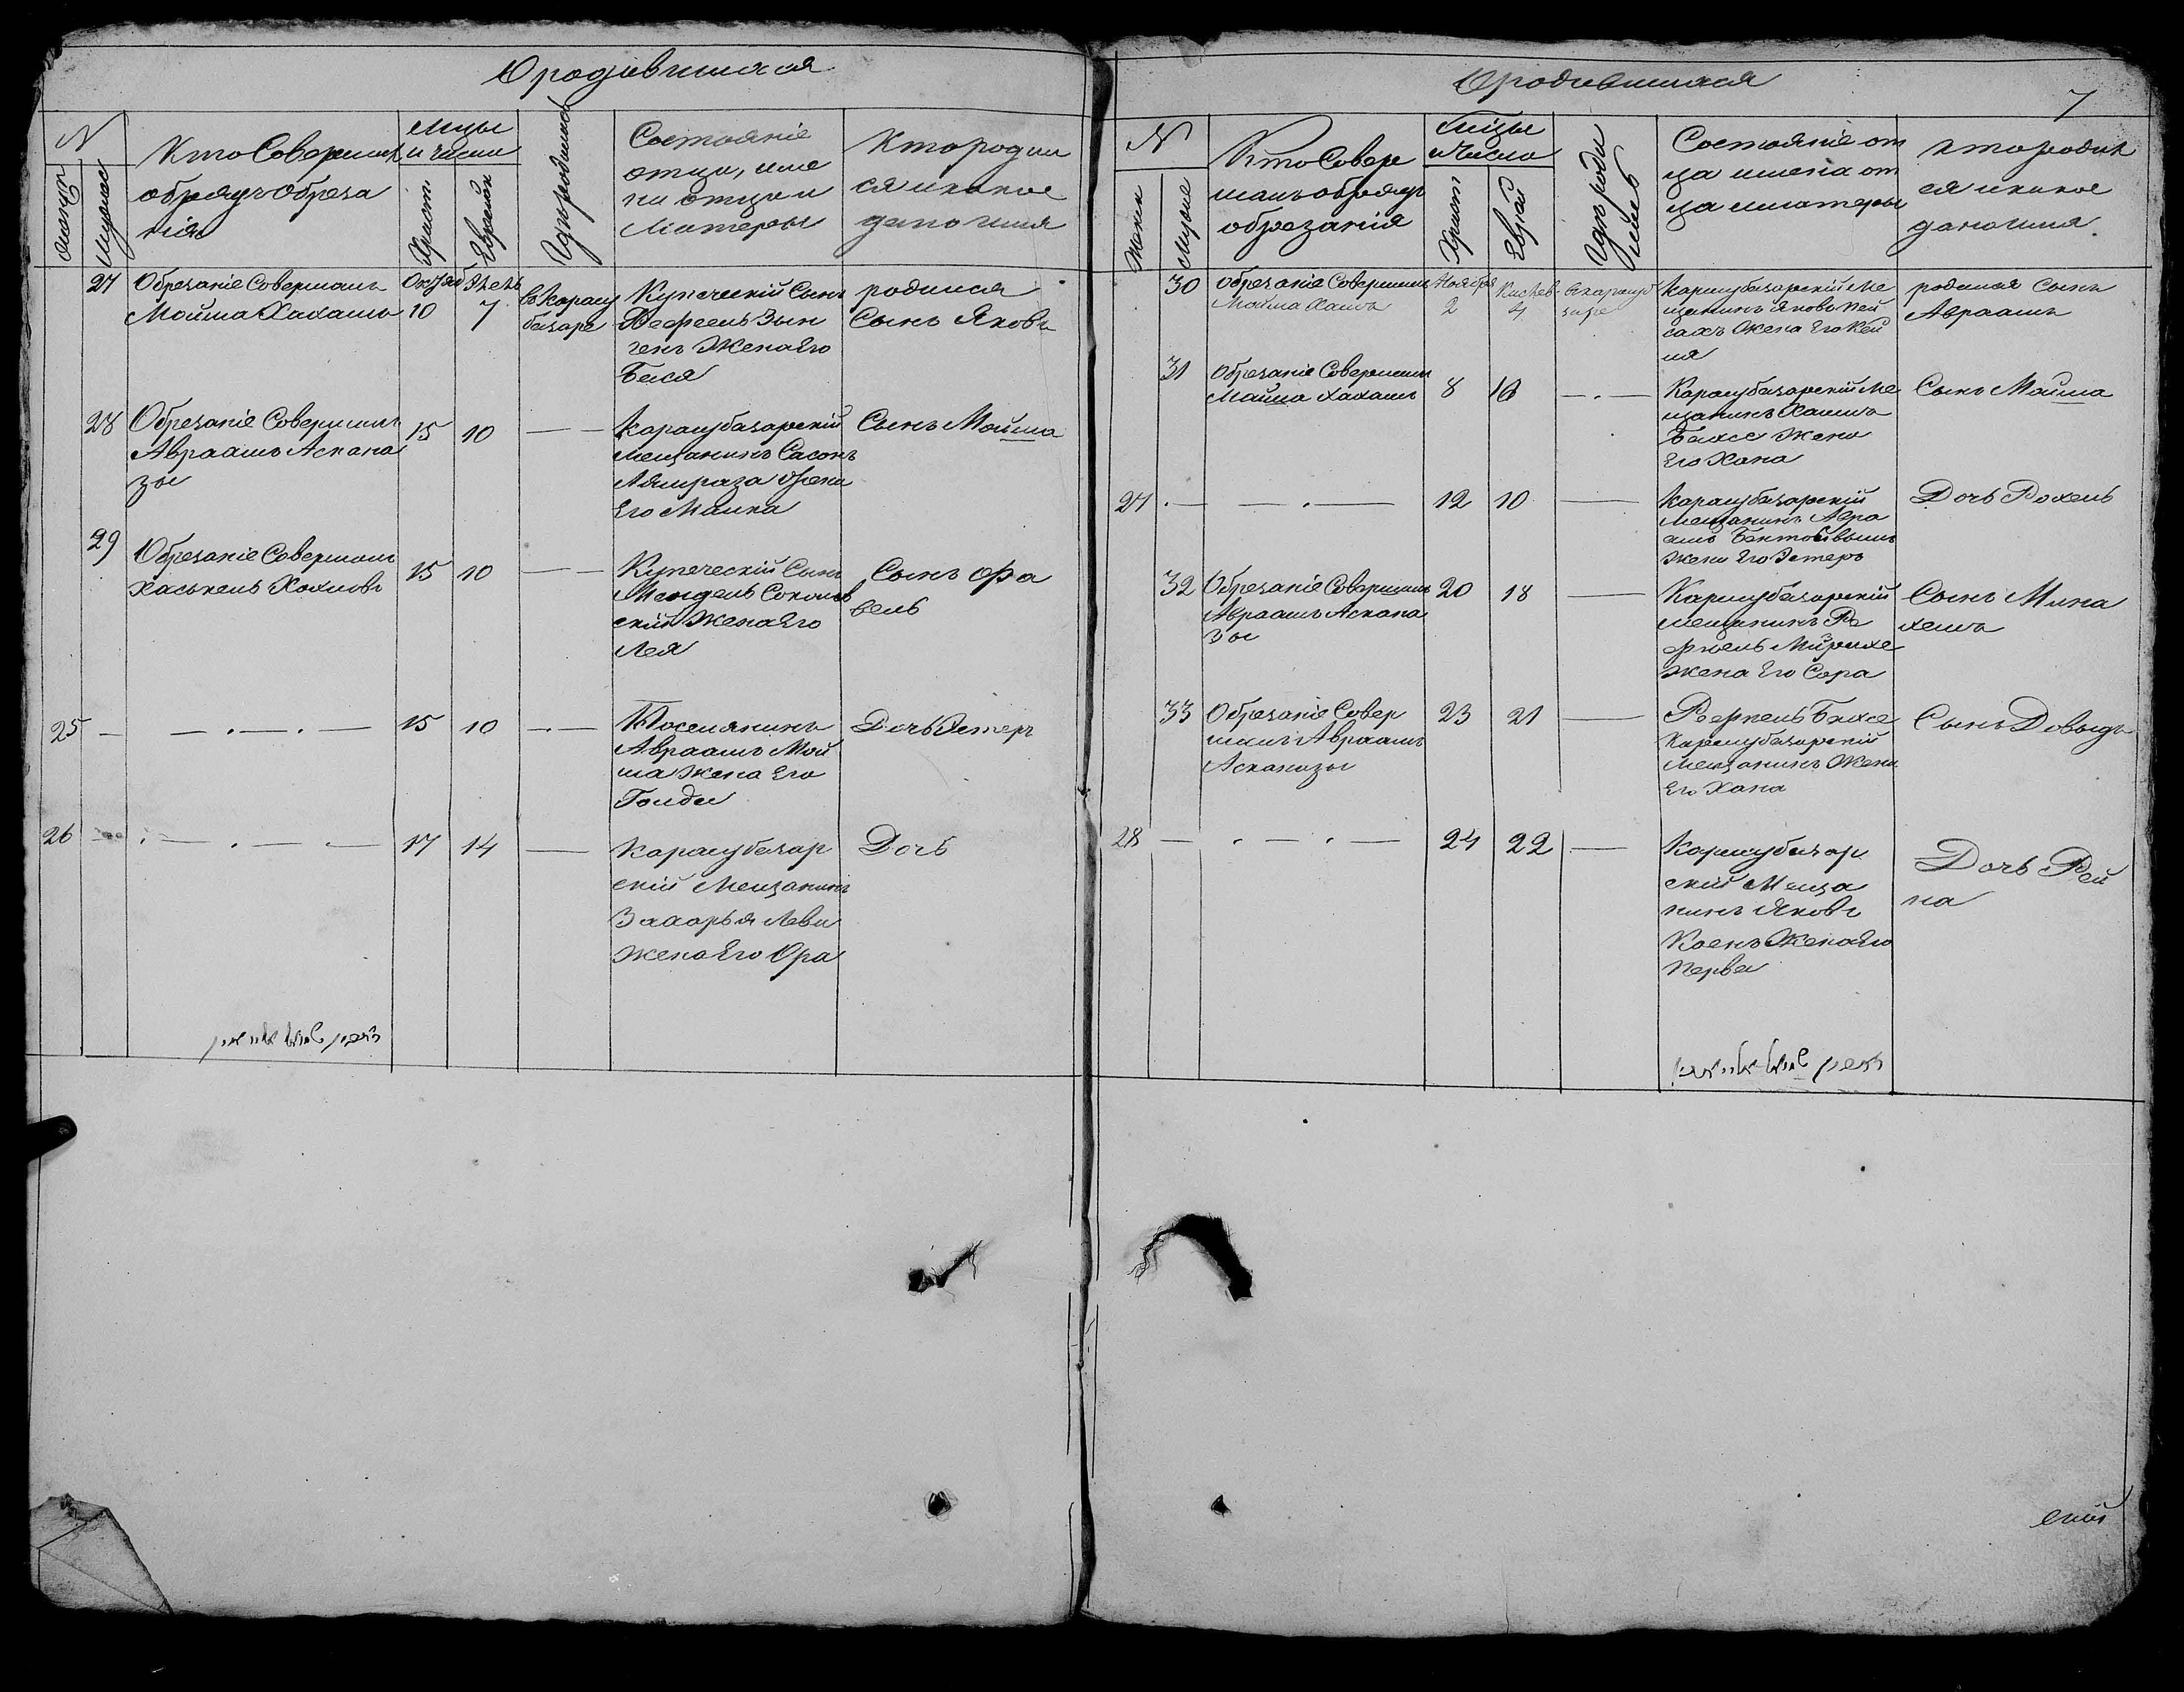 О родившихся
N
Женск
Мужеск
Кто Совершилъ
обрядъ обреза
нія
Мцы
и числа
Христ
Еврейск
Гдѣ родился
Состояніе
отца, име
на отца и
Матеры
Кто родил
ся и какое
дано имя
27
Обрезаніе Совершалъ
Мойша Хахамъ
Октяб
10
7
въ Карасу
базаре
Купеческій Сынъ
Жена Его
Бася
родился
Сынъ Яковъ
28
Обрезаніе Совершилъ
Авраамъ Аскана
зы
15
10
Карасубазарскій
Мещанинъ Сасонъ
Жена
Его Малка
Сынъ Мойша
29
Обрезаніе Совершалъ
15
10
Купеческій Сынъ
Мендель Соколов
скій Жена Его
Лея
Сынъ Фа
вель
25
15
10
Поселянинъ
Авраамъ Мой
ша Жена Его
Голда
Дочь Эстеръ
26
17
14
Карасубазар
скій Мещанинъ
Захарья Леви
Жена Его
Дочь
О родившихся
7
N
Женск
Мужск
Кто Совер
шалъ обрядъ
обрезанія
Мцы
и Числа
Христ
Еврей
Гдѣ роди
лись
Состояніе от
ца имена от
ца и матеры
Кто родил
ся и какое
дано имя
30
Обрезаніе Совершалъ
Мойша Хахамъ
Ноября
2
Кислев
4
Вкарасуб
заре
Карасубазарскій Ме
щанинъ Яковъ Пей
сахъ Жена Его
родился Сынъ
Авраамъ
31
Обрезаніе Совершалъ
Мойша Хахамъ
8
10
Карасубазарскій Ме
щанинъ Хаимъ
Бахсе Жена
Его Хана
Сынъ Мойша
27
12
10
Карасубазарскій
Мещанинъ Авра
амъ
Жена Его Эстеръ
Дочь Рохель
32
Обрезаніе Совершалъ
Авраамъ Аскана
зы
20
18
Карасубазарскій
мещанинъ Ре
фаель
Жена Его Сора
Сынъ Мена
хемъ
33
Обрезаніе Совер
шалъ Авраамъ
Асканазы
23
21
Рефаель Бахсе
Карасубазарскій
Мещанинъ Жена
Его Хана
Сынъ Довыдъ
28
24
22
Карасубазар
скій Меща
нинъ Яковъ
Коенъ Жена Его
Перва
Дочь Рей
на